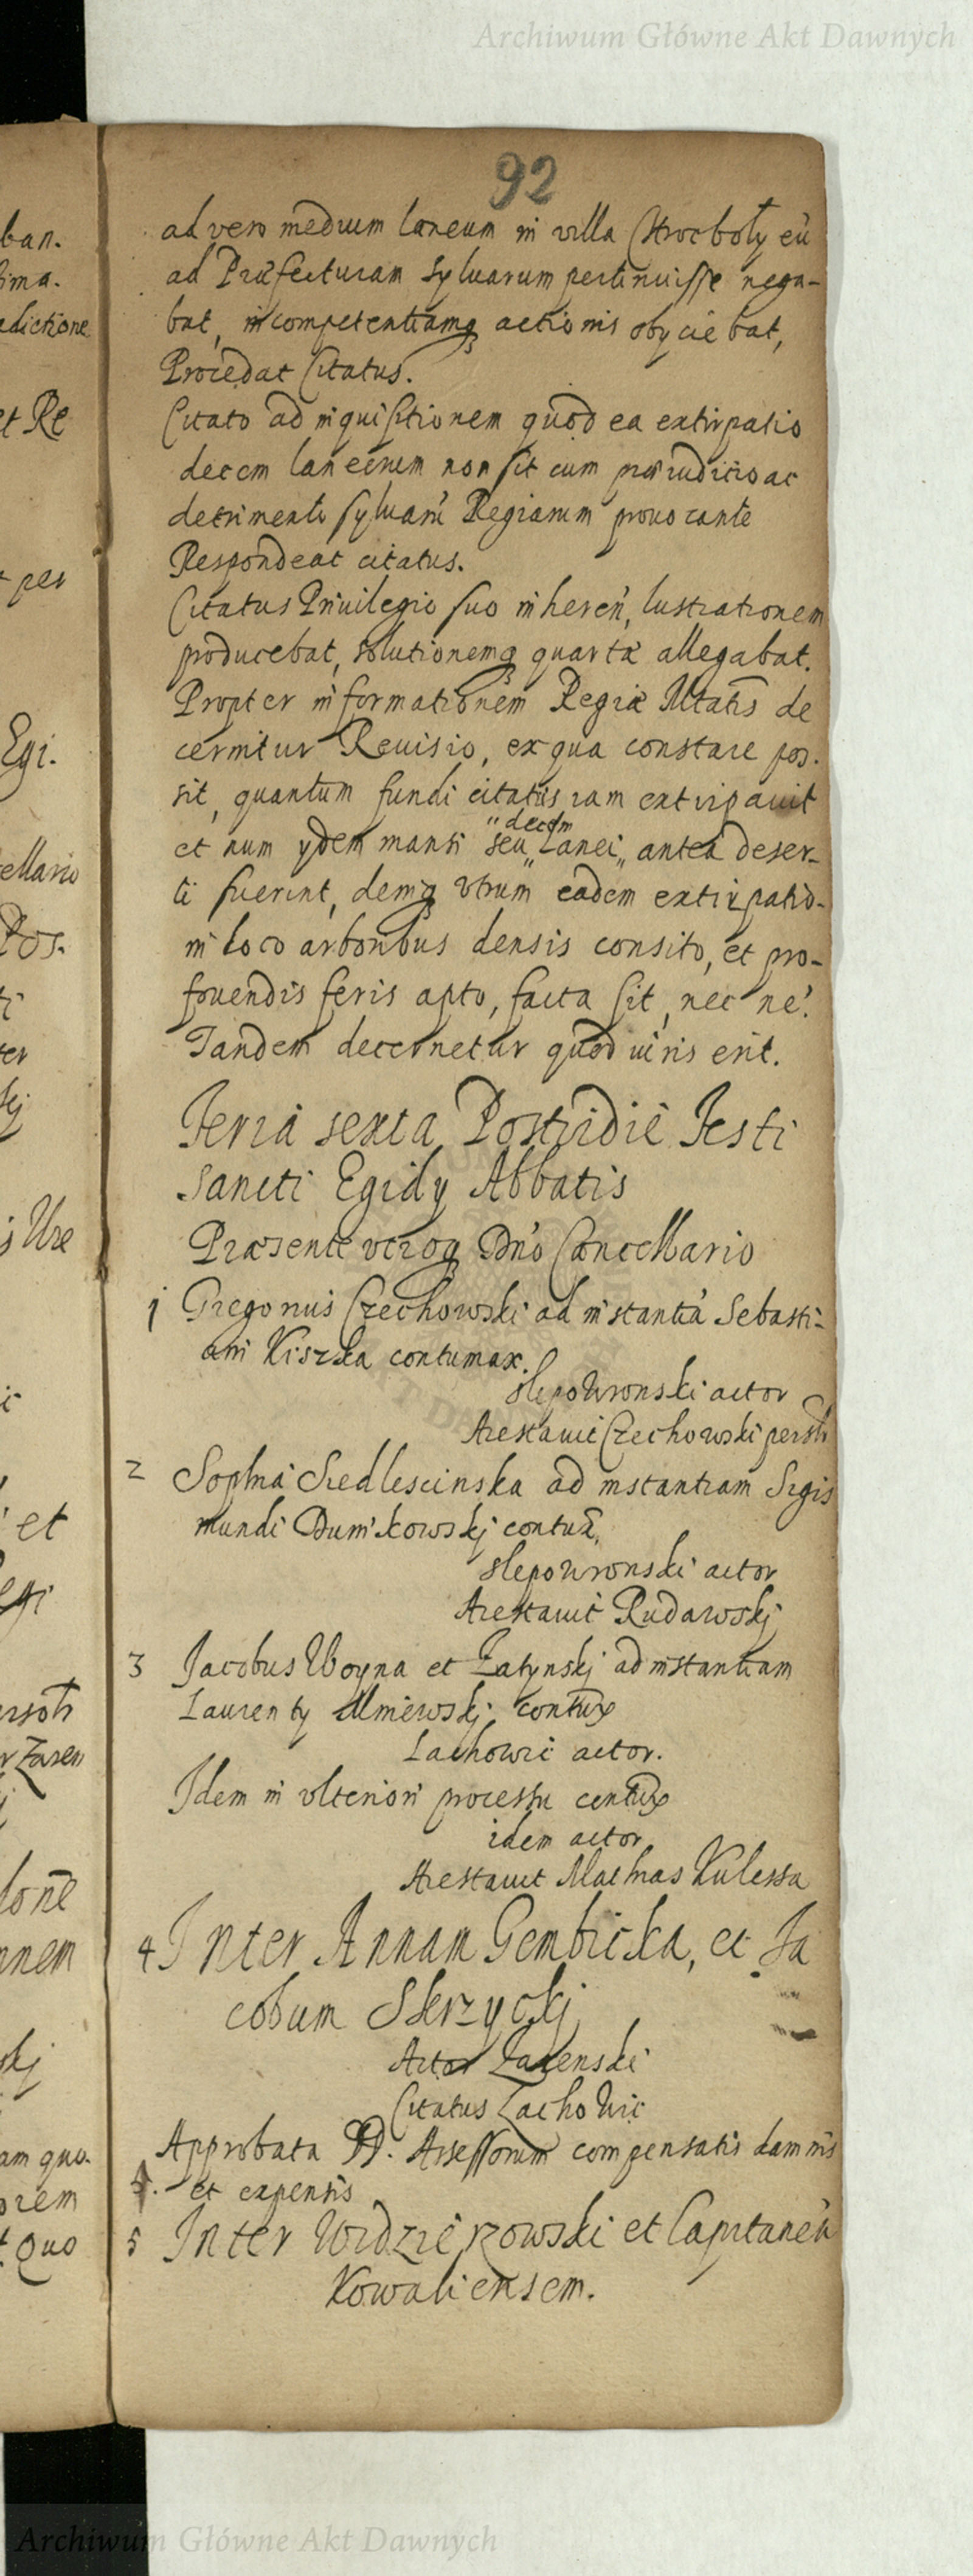 Archiwum Główne Akt Dawnych
92
ad vero medium laneum in villa Stroeboty eu
ad Præfecturam Syluarum pertinuisse nega-
bat, incompetentiamq actionis obyciebat,
Procedat Citatus.
Citato ad inquisitionem quod ea extirpatio
decem laneorum non sit cum præiudicio ac
detrimento syluarũ Regiarum prouocante
Respondeat citatus.
Citatus Priuilegio suo inheren, lustrationem
producebat, solutionemq quartæ allegabat.
Propter informationem Regiæ Mtatis de
cernitur Reuisio, ex qua constare pos.
sit, quantum fundi citatus iam extirpauit
decem
et num ydem mansi seu Lanei, antea deser-
ti fuerint, deniq vtrum eadem extirpatio
in loco arboribus densis consito, et pro-
fouendis feris apto, facta sit, nec ne.
Tandem decernetur quod iuris erit.
Feria sexta Postridie Festi
Sancti Egidy Abbatis
Præsente vtroq Dno Cancellario
1 Gregorius Czechowski ad instantia Sebasti-
ani Kiszka contumax.
Slepowronski actor
Arestauit Czechowski
2 Sophia Siedlescinska ad instantiam Sigis
mundi Dunikowskj contux
Slepowronski actor
Arestauit Rudawskj
3 Jacobus Woyna et Latynskj ad instantiam
Laurenty Umiewskj contux
Lachowic actor.
Idem in vlteriori processu contux
idem actor
Arestauit Mathias Kulessa
4 Inter Annam Gembicka, et Ja
cobum Skrzyckj
Actor Zarenski
Citatus Lachowic
Approbata DD. Assessorum compensatis damnis
et expensis
5 Inter Widzierzowski et Capitaneu
Kowaliensem.
Archiwum Główne Akt Dawnych